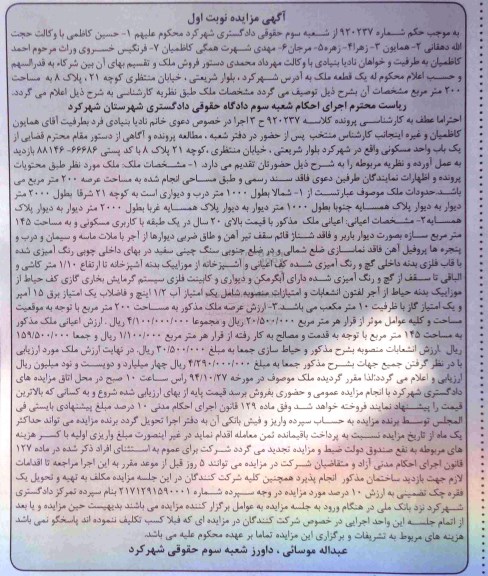 آگهی مزایده نوبت اول
به موجب حکم شماره ۹۲۰۲۳۷ از شعبه سوم حقوقی دادگستری شهرکرد محکوم علیهم ۱- حسین کاظمی با وکالت حجت
اله دهقانی ۲- همایون ۳- زهرا ۴- زهره ۵- مرجان ۶- مهدی شهرت همگی کاظمیان ۷- فرنگیس خسروی وراث مرحوم احمد
کاظمیان به طرفیت و خواهان نادیا بنیادی با وکالت مهرداد محمدی دستور فروش ملک و تقسیم بهای آن بین شرکاء به قدرالسهم
و حسب اعلام محکوم له یک قطعه ملک به آدرس شهرکرد ، بلوار شریعتی ، خیابان منتظری کوچه ۲۱، پلاک ۸ به مساحت
۲۰۰ متر مربع مشخصات آن بشرح ذیل توصیف می گردد مشخصات ملک طبق نظریه کارشناسی به شرح ذیل اعلام می گردد.
ریاست محترم اجرای احکام شعبه سوم دادگاه حقوقی دادگستری شهرستان شهرکرد
احتراما عطف به کارشناسی پرونده کلاسه ۹۲۰۲۳۷ ح ۳ اجرا در خصوص دعوی خانم نادیا بنیادی فرد بطرفیت آقای همایون
کاظمیان و غیره اینجانب کارشناس منتخب پس از حضور در دفتر شعبه ، مطالعه پرونده و آگاهی از دستور مقام محترم قضایی از
یک باب واحد مسکونی واقع در شهرکرد بلوار شریعتی ، خیابان منتظری ،کوچه ۲۱ پلاک ۸ با کد پستی ۶۶۶۸۶-۸۸۱۴۶ بازدید
به عمل آورده و نظریه مربوطه را به شرح ذیل حضورتان تقدیم می دارد. ۱- مشخصات ملک: ملک مورد نظر طبق محتویات
پرونده و اظهارات نمایندگان طرفین دعوی فاقد سند رسمی و طبق مساحی انجام شده به مساحت عرصه ۲۰۰ متر مربع می
باشد.حدودات ملک موصوف عبارتست از ۱- شمالا بطول ۱۰۰۰ متر درب و دیواری است به کوچه ۲۱ شرقا بطول ۲۰۰۰ متر
دیوار به دیوار پلاک همسایه جنوبا بطول ۱۰۰۰ متر دیوار به دیوار پلاک همسایه غربا بطول ۲۰۰۰ متر دیوار به دیوار پلاک
همسایه ۲- مشخصات اعیانی: اعیانی ملک مذکور با قیمت بالای ۲۰ سال در یک طبقه با کاربری مسکونی و به مساحت ۱۴۵
متر مربع سازه بصورت دیوار باربر و فاقد شناژ قائم سقف تیر آهن و طاق ضربی دیوارها از آجر با ملات ماسه و سیمان و درب و
پنجره ها پروفیل آهن فاقد نماسازی ضلع شمالی و در ضلع جنوبی سنگ چینی سفید در بهای داخلی چوبی رنگ آمیزی شده
با قاب فلزی بدنه داخلی گچ و رنگ آمیزی شده کف اعیانی و آشپزخانه از موزاییک بدنه آشپزخانه تا ارتفاع ۱/۱۰ متر کاشی و
الباقی تا سقف از گچ و رنگ آمیزی شده دارای آبگرمکن و دیواری و کابینت فلزی سیستم گرمایش بخاری گازی کف حیاط از
موزاییک بدنه حیاط از آجر لفتون انشعابات و امتیازات منصوبه شامل یک امتیاز آب ۱/۲ اینچ و فاضلاب یک امتیاز برق ۱۵ آمپر
و یک امتیاز گاز با ظرفیت ۱۰ متر مکعب می باشد.۳- ارزش عرصه ملک مذکور به مساحت ۲۰۰ متر مربع با توجه به موقعیت
و کلیه عوامل موثر از قرار هر متر مربع ۲۰/۵۰۰/۰۰۰ ریال و مجموعا ۴/۱۰۰/۰۰۰/۰۰۰ ریال . ارزش اعیانی ملک مذکور
به مساحت ۱۴۵ متر مربع با توجه به قدمت و مصالح به کار رفته از قرار هر متر مربع ۱/۱۰۰/۰۰۰ ریال و جمعا ۱۵۹/۵۰۰/۰۰۰
ریال .ارزش انشعابات منصوبه بشرح مذکور و حیاط سازی جمعا به مبلغ ۳۰/۵۰۰/۰۰۰ ریال. در نهایت ارزش ملک مورد ارزیابی
با در نظر گرفتن جمیع جهات بشرح مذکور جمعا به مبلغ ۴/۲۹۰/۰۰۰/۰۰۰ ریال چهار میلیارد و دویست و نود میلیون ریال
ارزیابی و اعلام می گردد.لذا مقرر گردیده ملک موصوف در مورخه ۹۴/۱۰/۲۷ راس ساعت ۱۰ صبح در محل اتاق مزایده های
دادگستری شهرکرد با انجام مزایده عمومی و حضوری بفروش برسد قیمت پایه از بهای ارزیابی شده شروع و به کسانی که بالاترین
قیمت را پیشنهاد نمایند فروخته خواهد شد وفق ماده ۱۲۹ قانون اجرای احکام مدنی ۱۰ درصد مبلغ پیشنهادی بایستی فی
المجلس توسط برنده مزایده به حساب سپرده واریز و فیش بانکی آن به دفتر اجرا تحویل گردد برنده مزایده می تواند حداکثر
یک ماه از تاریخ مزایده نسبت به پرداخت باقیمانده ثمن معامله اقدام نماید در غیر اینصورت مبلغ واریزی اولیه با کسر هزینه
های مربوطه به نفع صندوق دولت ضبط و مزایده تجدید می گردد شرکت برای عموم به استثنای افراد ذکر شده در ماده ۱۲۷
قانون اجرای احکام مدنی آزاد و متقاضیان شرکت در مزایده می توانند ۵ روز قبل از موعد مقرر به این اجرا مراجعه تا اقدامات
لازم جهت بازدید ساختمان مذکور انجام پذیرد همچنین کلیه شرکت کنندگان در این جلسه مزایده مکلف به تهیه و تحویل یک
فقره چک تضمینی به ارزش ۱۰ درصد مورد مزایده در وجه سپرده شماره ۲۱۷۱۲۹۱۵۹۰۰۰۱ بنام سپرده تمرکز دادگستری
شهرکرد نزد بانک ملی در هنگام ورود به جلسه مزایده به عوامل برگزار کننده مزایده می باشند بدیهیست حین مزایده و یا بعد
از اتمام جلسه این واحد اجرایی در خصوص شرکت کنندگان در مزایده ای که قبلا کسب تکلیف ننموده اند پاسخگو نمی باشد
هزینه های مربوط به تشریفات و برگزاری این مزایده تماما بر عهده محکوم علیه می باشد.
عبداله موسائی ، دادورز شعبه سوم حقوقی شهرکرد